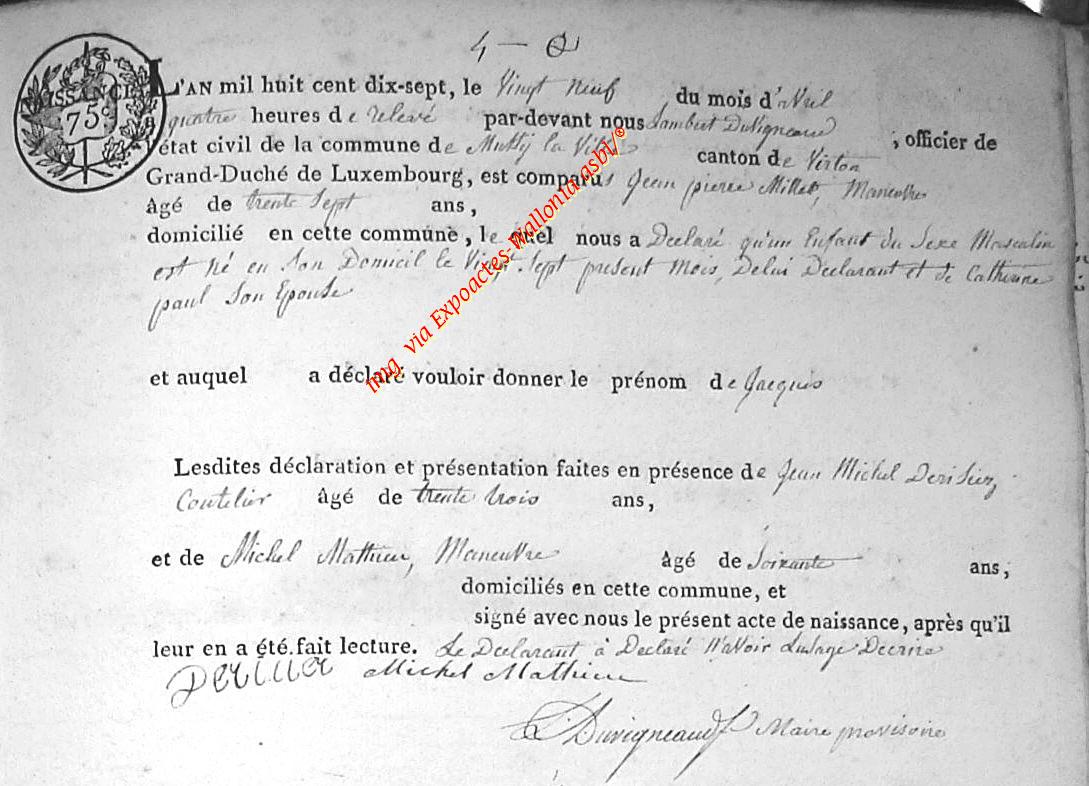 4 -
L'AN mil huit cent dix-sept, le Vingt Neuf du mois d'avril
à quatre heures de relevé par-devant nous Lambert Duvigneaud, officier de
l'état civil de la commune de Mussy la Ville canton de Virton
Grand-Duché de Luxembourg, est comparu Jean pierre Millet, Maneuvre
âgé de trente Sept ans,
domicilié en cette commune, le quel nous a Declaré qu'un Enfant du Sexe Masculin
est Né en Son Domicil le Vingt Sept present Mois, De lui Declarant et de Catherine
paul Son Epouse
et auquel a déclaré vouloir donner le prénom de Jacques
Lesdites déclaration et présentation faites en présence de Jean Michel
Coutelier âgé de trente trois ans,
et de Michel Mathieu, Maneuvre âgé de Soixante ans,
domiciliés en cette commune, et
signé avec nous le présent acte de naissance, après qu'il
leur en a été fait lecture. Le Declarant à Declaré N'avoir Lusage Decrire
Michel Mathieu
Duvigneaud Maire provisoire
75
img via Expoactes-Wallonia.asbl/®